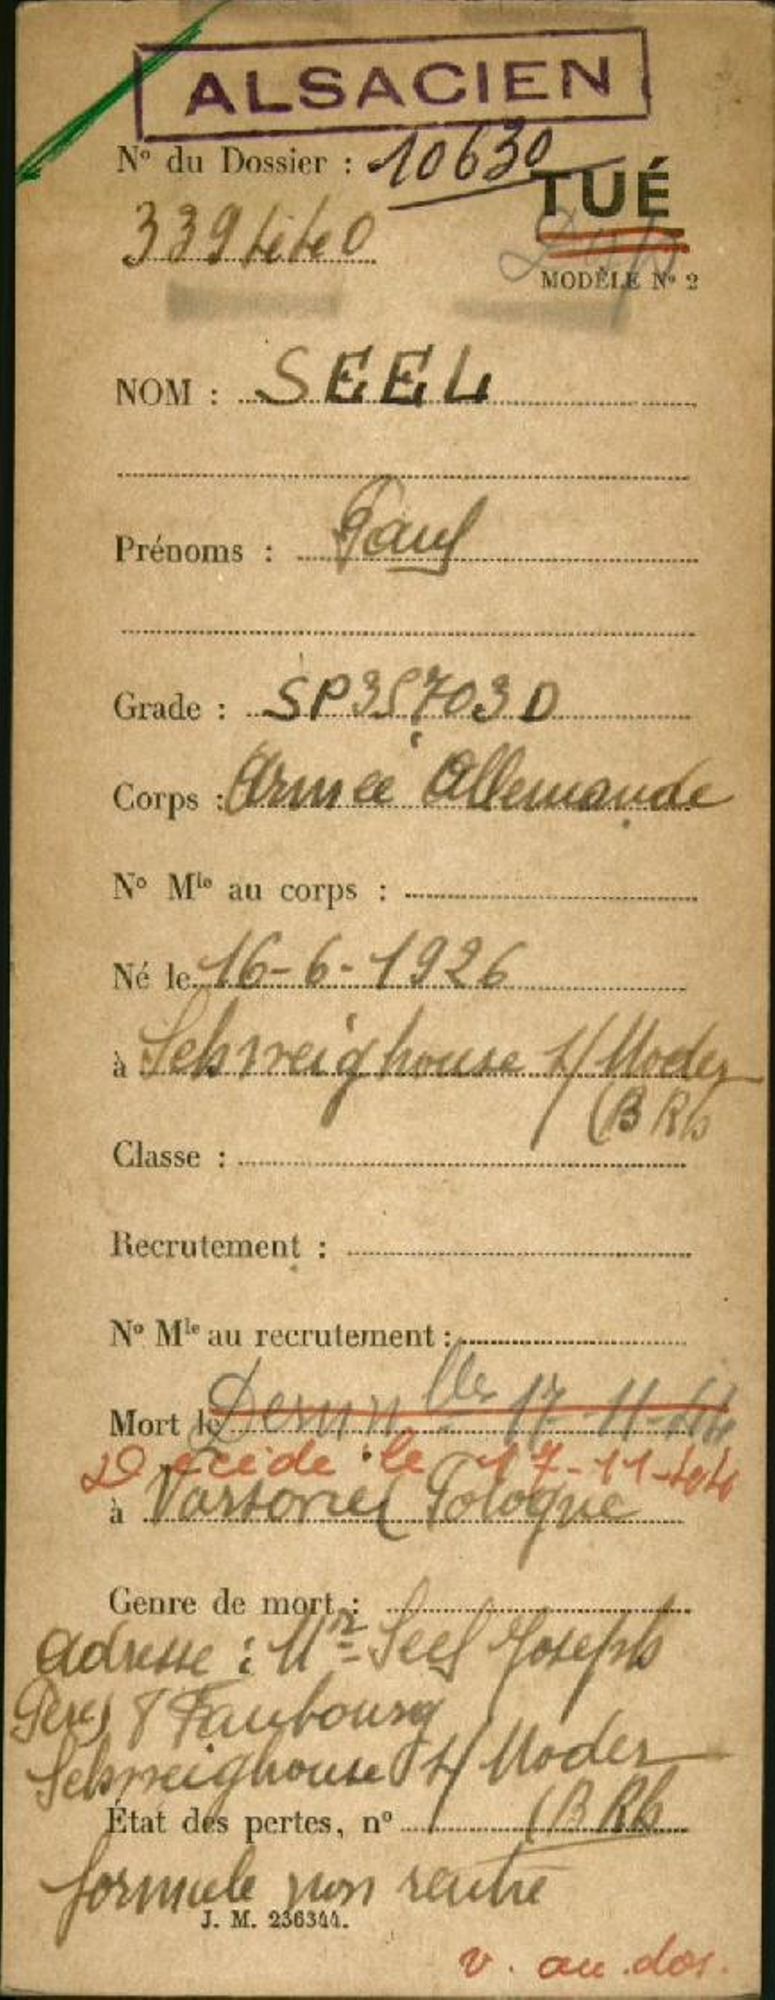 ALSACIEN
N° du Dossier : 10630
TUÉ
339
MODÈLE N° 2
NOM : SEEL
Prénoms : Paul
Grade : SP 35703 D
Corps : Armée Allemande
N° Mle au corps :
Né le 16-6-1926
à Schweighouse s/ Moder
(B Rh
Classe :
Recrutement :
N° Mle au recrutement :
Mort le 17-11-44
Décédé le 17-11-44
à Varsovie (Pologne
Genre de mort :
adresse : Mr Seel Joseph
Père) 8 Faubourg
Schweighouse s/ Moder
État des pertes, n° (B Rh
formule non rentré
J. M. 236344.
v. au dos.